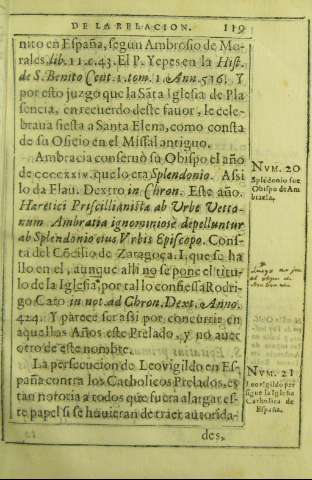 DE LA RELACION. 119
nito en España, segun Ambrosio de Mo-
rales lib. 11. c. 43. El P. Yepes en la Hist.
de S. Benito Cent. 1. tom. 1. Ann. 516. Y
por esto juzgo que la Santa Iglesia de Pla
sencia, en recuerdo deste favor, le cele-
brava fiesta a Santa Elena, como consta
de su Oficio en el Missal antiguo.
Ambracia conservò su Obispo el año
de CCCCXXIV. que lo era Splendonio. Assi
lo da Flau. Dextro in Chron. Este año.
Hæretici Priscillianistæ ab Urbe Vetto-
num Ambratia ignominiosè depelluntur
ab Splendonio eius Vrbis Episcopo. Cons-
ta del Cõcilio de Zaragoça. I. que se ha
llo en el, aunque alli no se pone el titu-
lo de la Iglesia, por tal lo confiessa Rodri-
go Caro in not. ad Chron. Dext. Anno.
424. Y parece ser assi por concurrir en
aquellos Años este Prelado, y no aver
otro de este nombre.
La persecucion de Leovigildo en Es-
paña contra los Catholicos Prelados, es
tan notoria a todos que fuera alargar es-
te papel si se huvieran de traer autorida-
des,
NVM. 20
Splendonio fue
Obispo de Am
bracia.
NVM. 21
Leovigildo per
sigue la Iglesia
Catholica de
España.